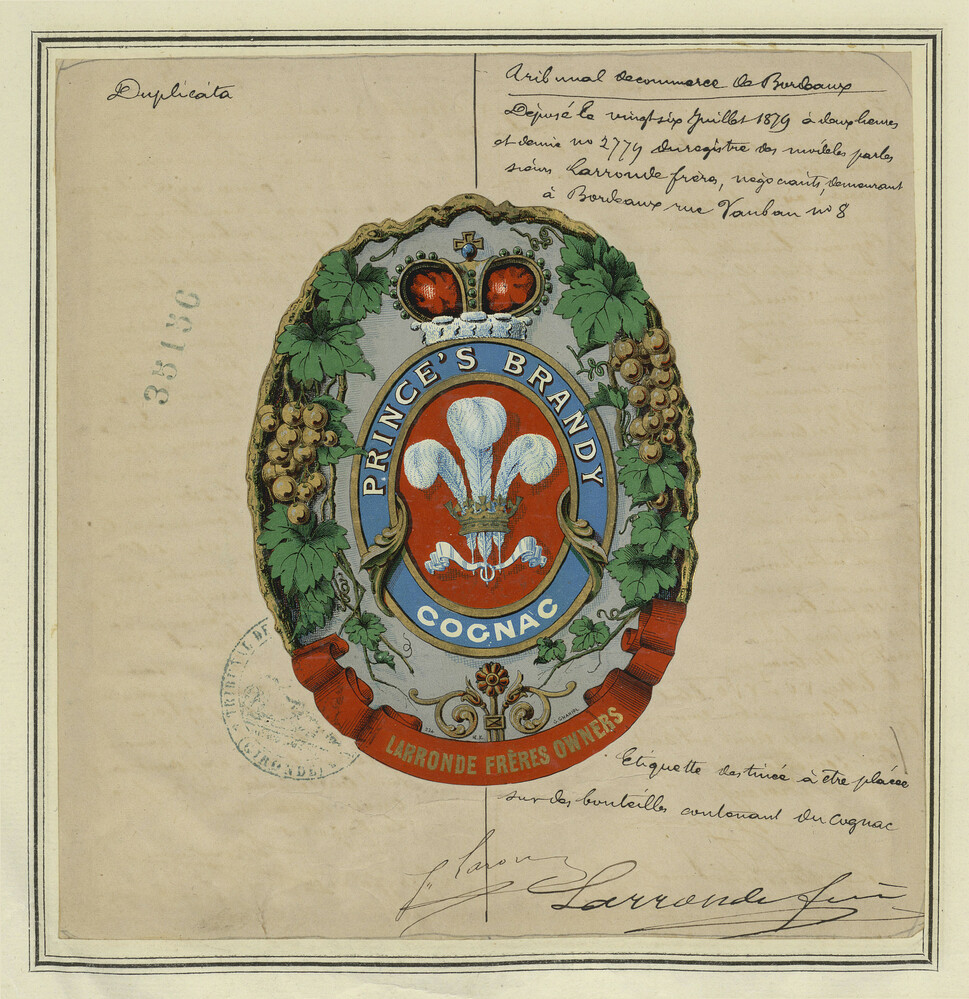 Duplicata
Tribunal de commerce de Bordeaux
Déposé le vingt six Juillet 1879 à deux heures
et demie no 2779 du registre des modèles par les
sieurs Larronde frères, négociants, demeurant
à Bordeaux rue Vauban no 8
35136
PRINCE'S BRANDY
COGNAC
TRIBUNAL DE
(GIRONDE)
LARRONDE FRÈRES OWNERS
Etiquette destinée à être placée
sur des bouteilles contenant du Cognac
Larronde frères